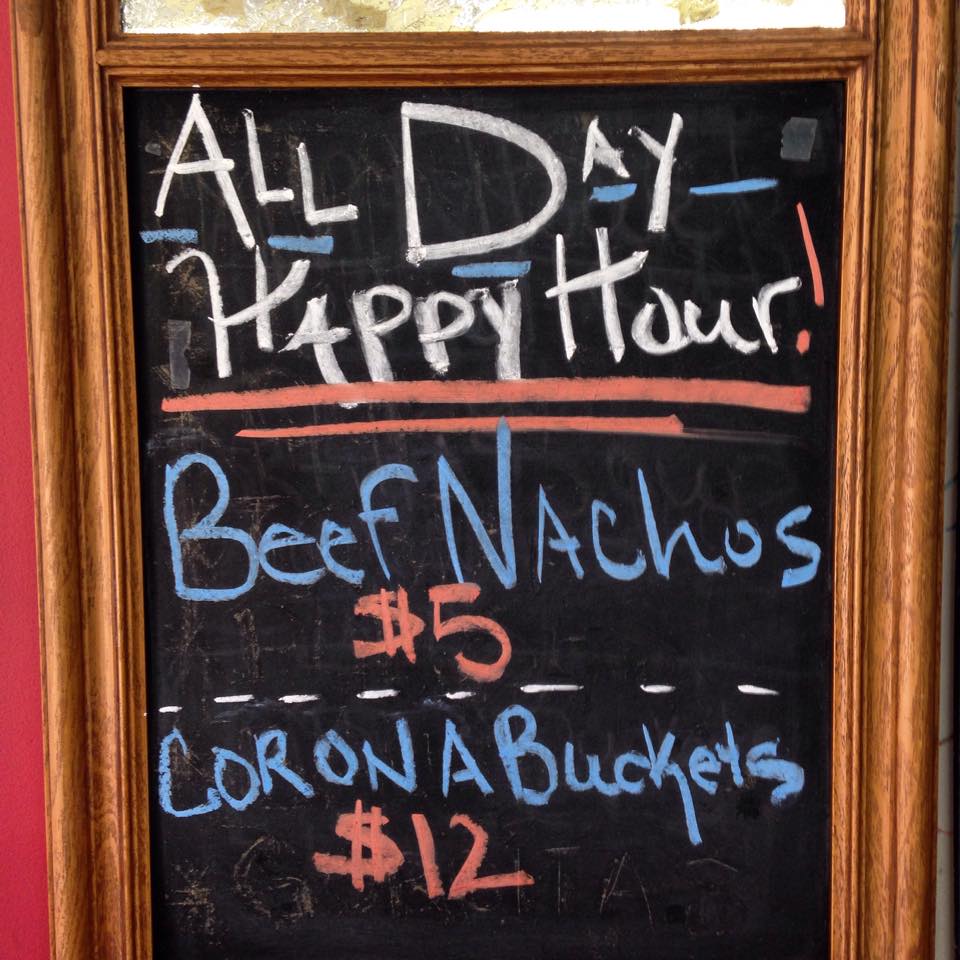 ALL DAY
HAPPY HOUR!
BEEF NACHOS
$5
CORONA BUCKETS
$12